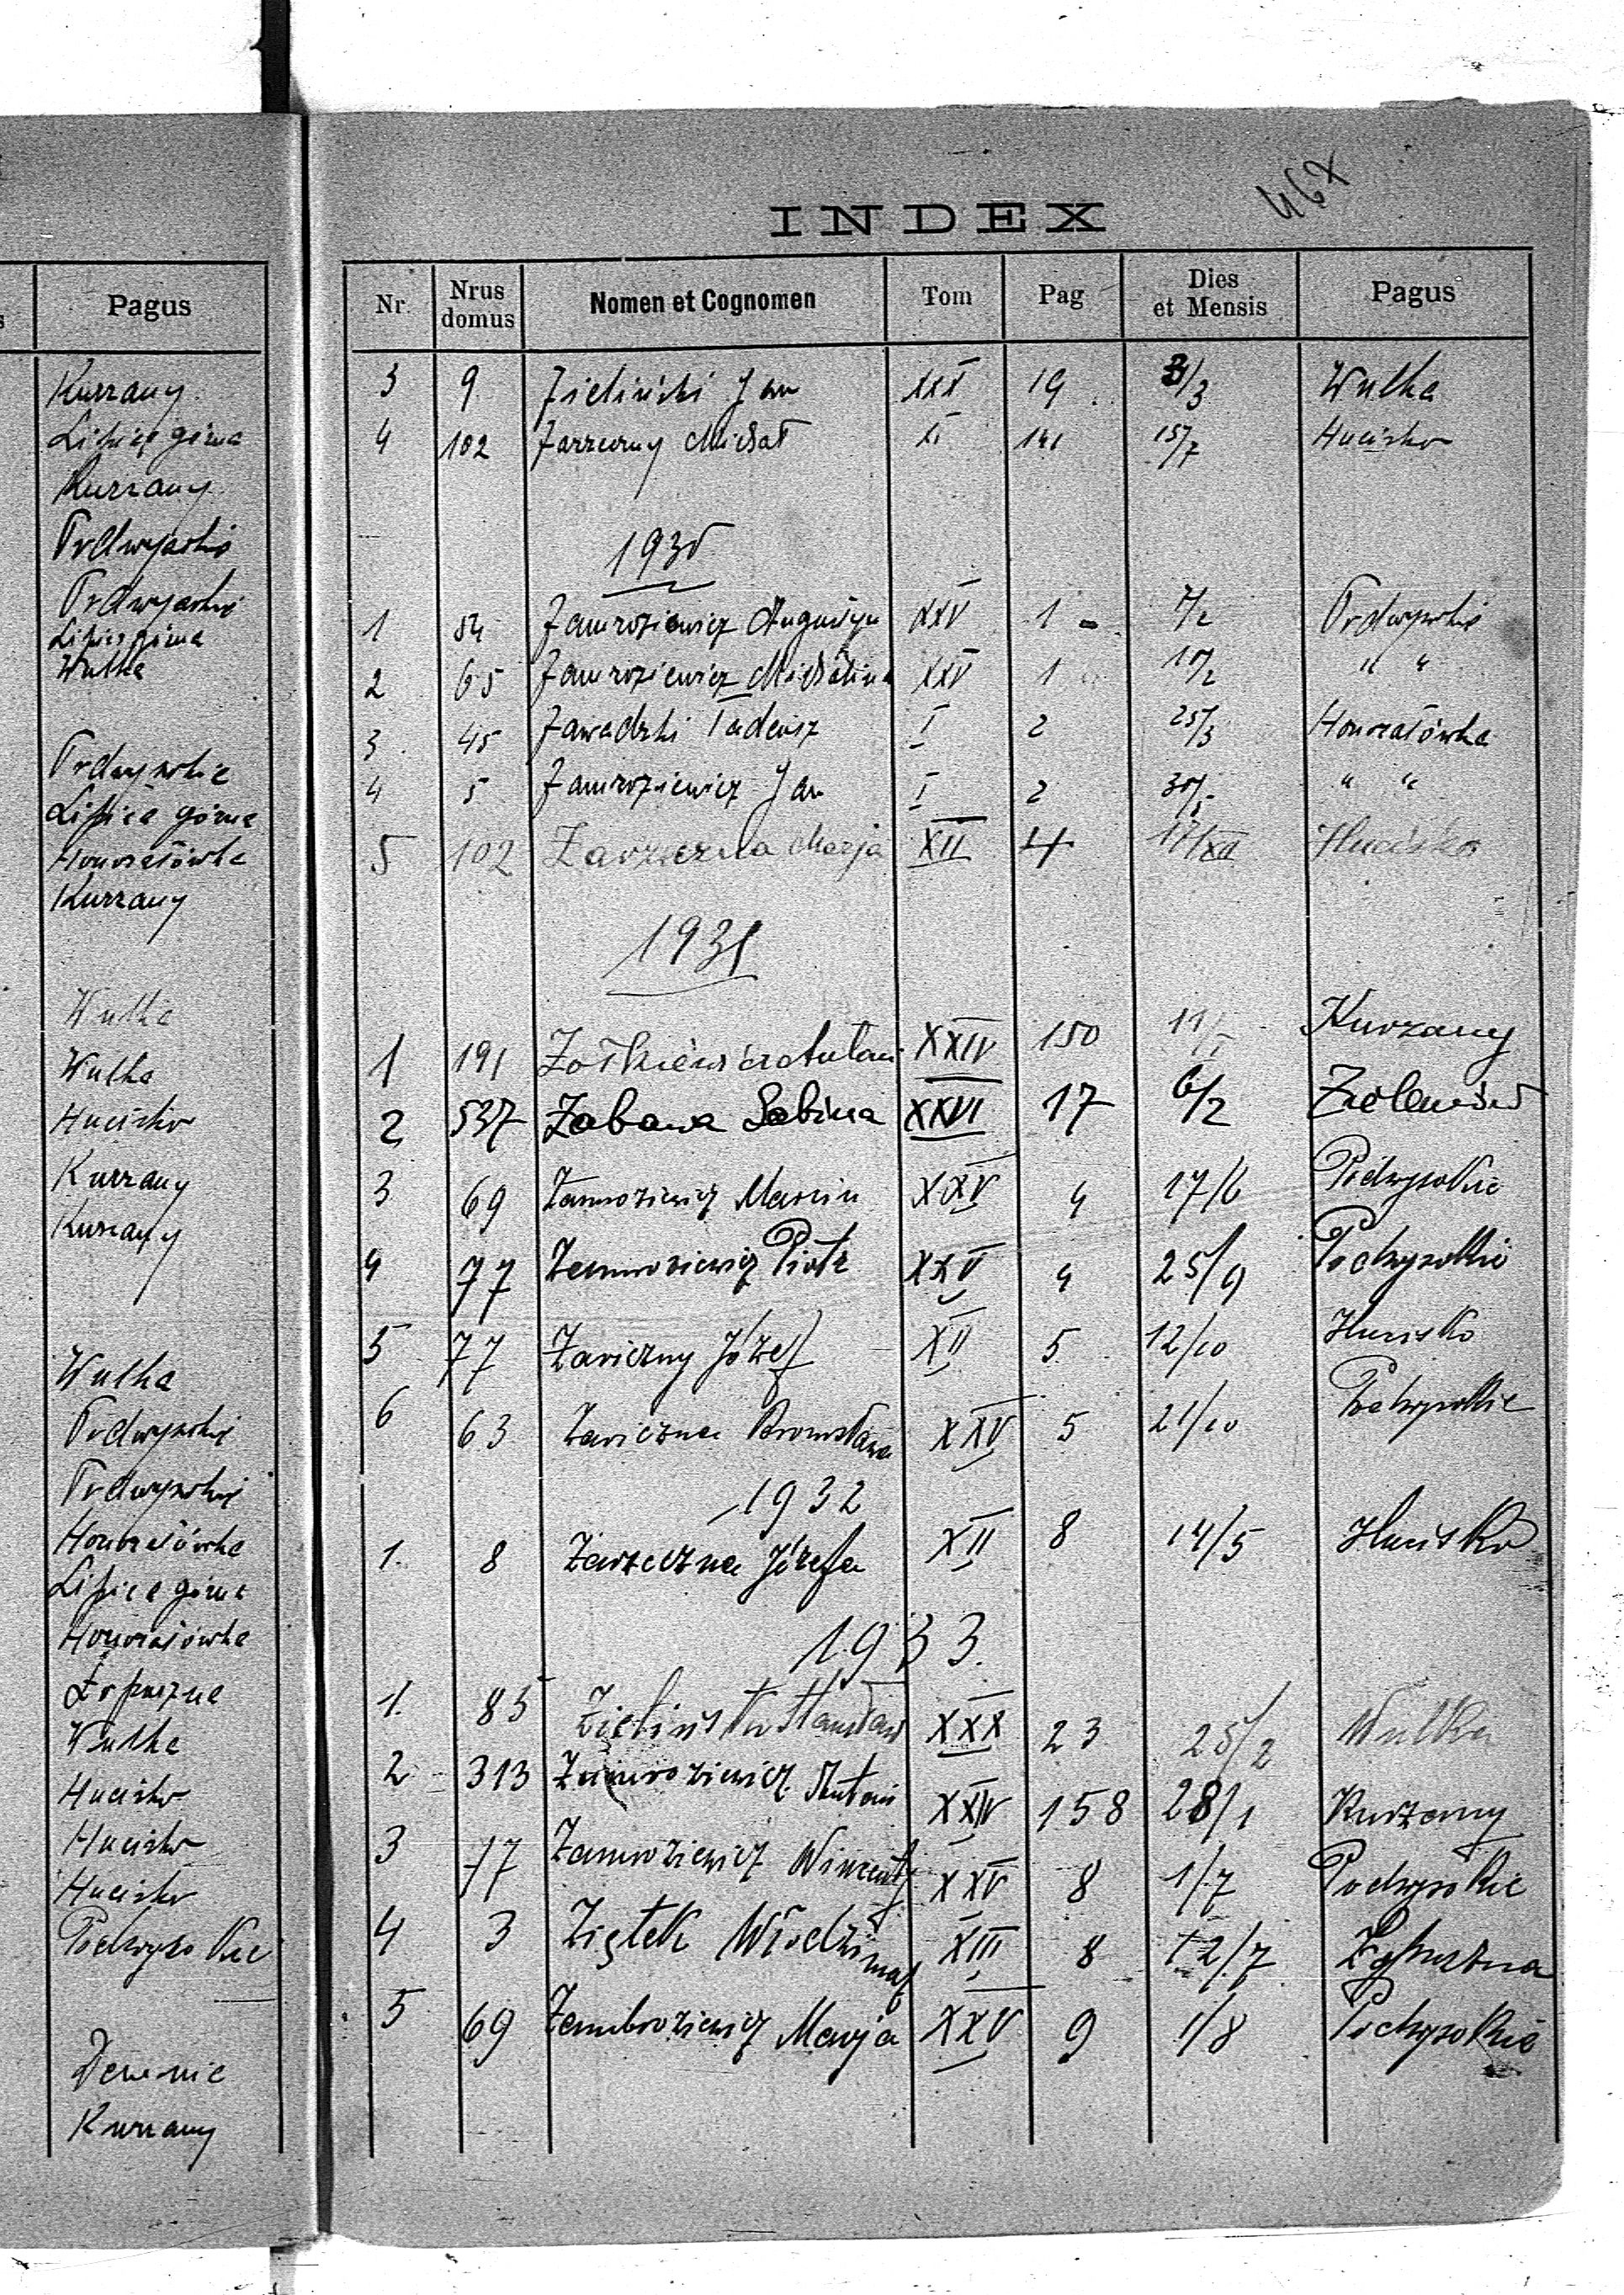 467
INDEX
Pagus
Kurzany
Lipica górna
Kurzany
Podwysokie
Podwysokie
Lipica górna
Wulka
Podwysokie
Lipica górna
Honoratówka
Kurzany
Wulka
Wulka
Hucisko
Kurzany
Kurzany
Wulka
Podwysokie
Podwysokie
Honoratówka
Lipica górna
Honoratówka
Łopuszna
Wulka
Hucisko
Hucisko
Hucisko
Podwysokie
Kurzany
Nr. Nrus domus Nomen et Cognomen Tom Pag Dies et Mensis Pagus
3 9 Zieliński Jan XXX 19 3/3 Wulka
4 102 Zarzeczny Michał XI 141 15/7 Hucisko
1930
1 54 Zamroziewicz Augustyn XXV 1 7/2 Podwysokie
2 65 Zamroziewicz Michalina XXV 1 10/2 " "
3 45 Zawadzki Tadeusz I 2 25/3 Honoratówka
4 5 Zamroziewicz Jan I 2 " "
5 102 Zarzeczna Marja XII 4 17/XII Hucisko
1931
1 191 Zołkiewicz Antoni XXIV 150 11/I Kurzany
2 537 Zabawa Sabina XXVI 17 6/2
3 69 Zamroziewicz Marcin XXV 4 17/6 Podwysokie
4 77 Zamroziewicz Piotr XXV 4 25/9 Podwysokie
5 77 Zariczny Józef XII 5 12/10 Hucisko
6 63 Zariczna Bronisława XXV 5 21/10 Podwysokie
1932
1. 8 Zarzeczna Józefa XII 8 14/5 Hucisko
1933.
1. 85 Zieliński Stanisław XXX 23 25/2 Wulka
2 313 Zamroziewicz Antoni XXIV 158 28/1 Kurzany
3 77 Zamroziewicz Wincenty XXV 8 1/7 Podwysokie
4 3 Ziętek Włodzimierz XIII 8 12/7 Łopuszna
5 69 Zambroziewicz Marja XXV 9 1/8 Podwysokie